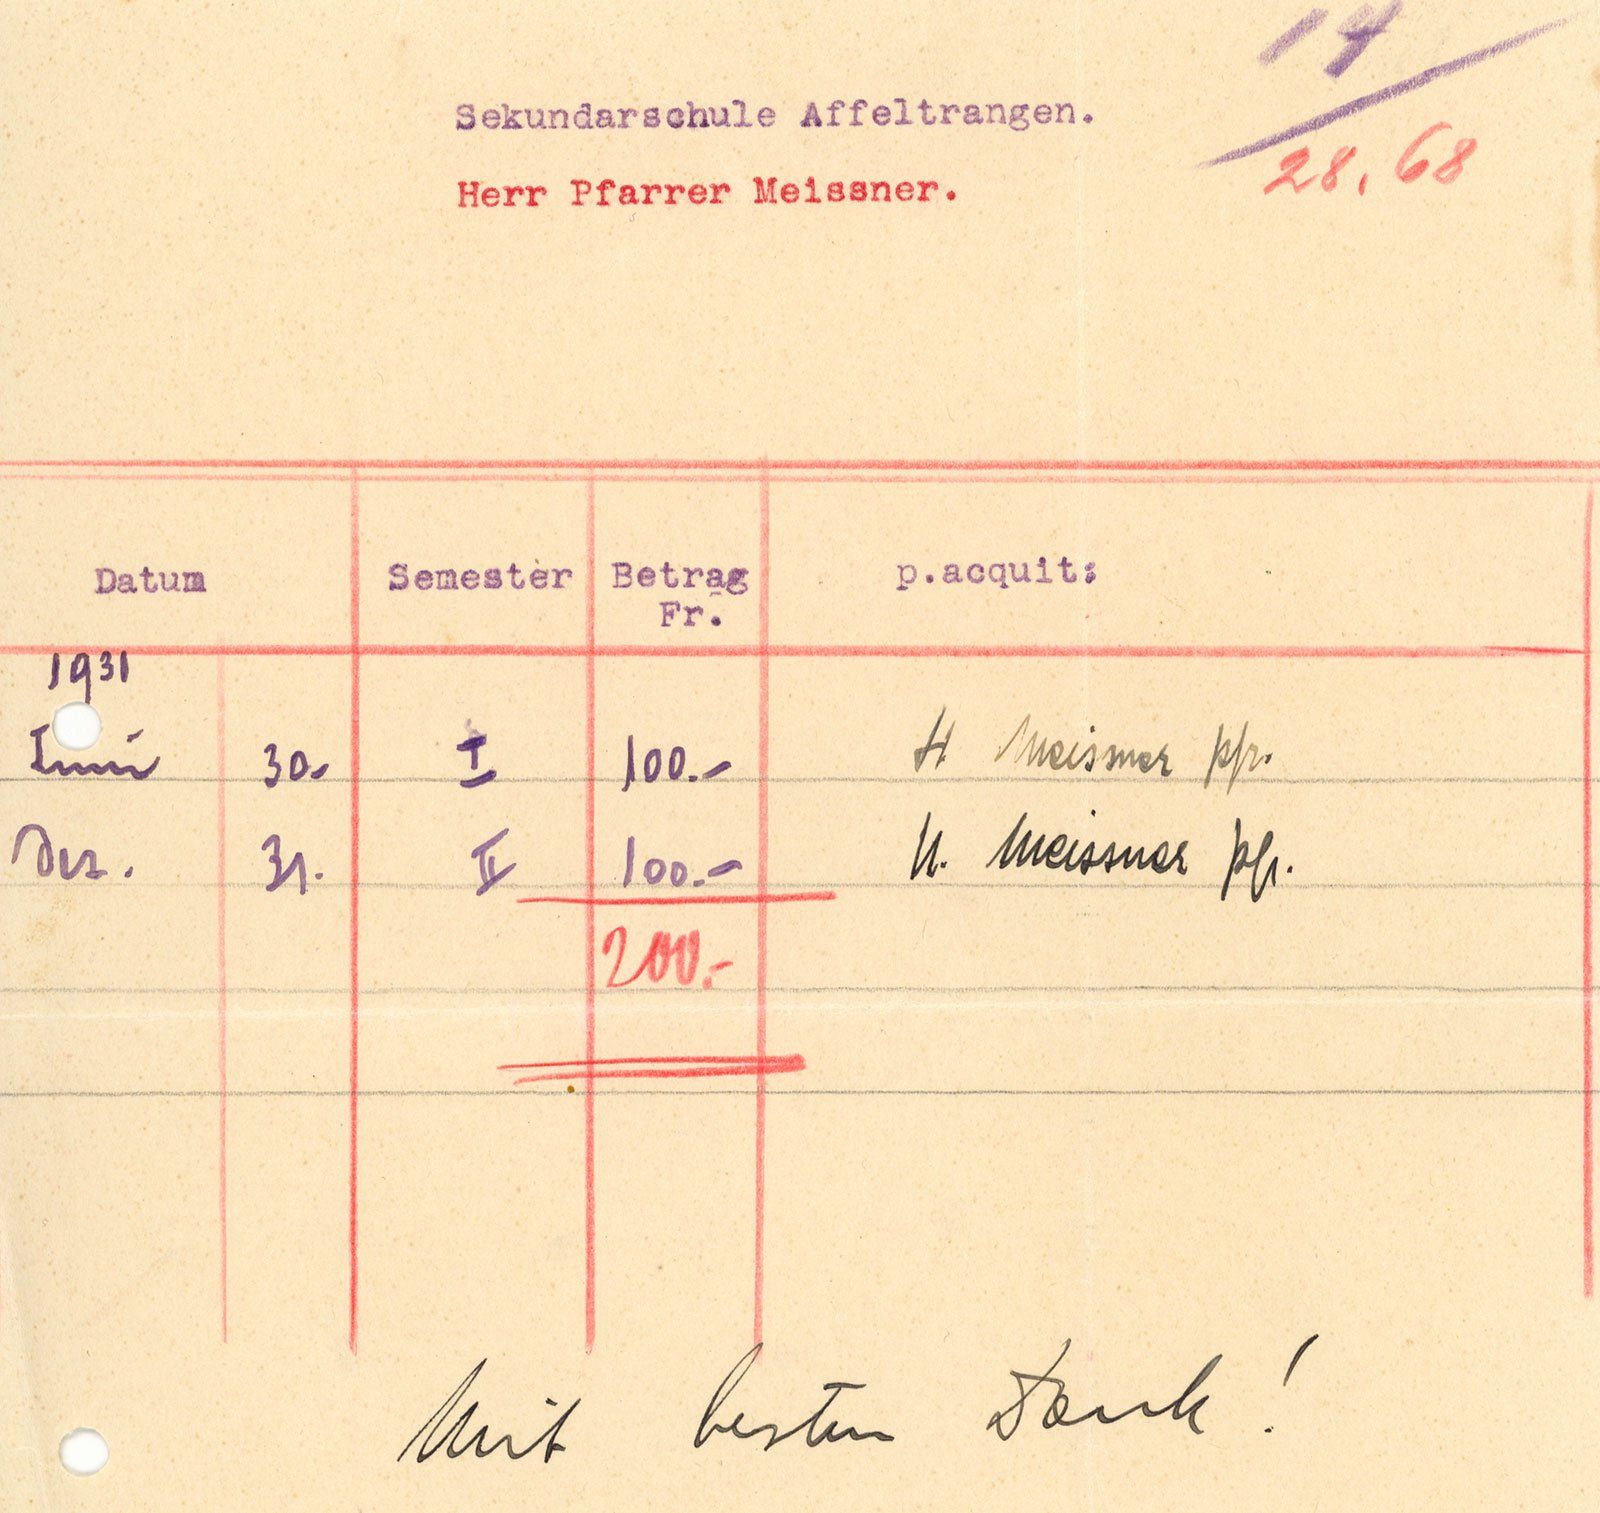 14
Sekundarschule Affeltrangen.
28,68
Herr Pfarrer Meissner.
Datum Semester Betrag p.acquit:
Fr.
1931
Juni 30.- I 100.- H. Meissner pfr.
Dez. 31. II 100.- H. Meissner pfr.
200.-
Mit besten Dank!